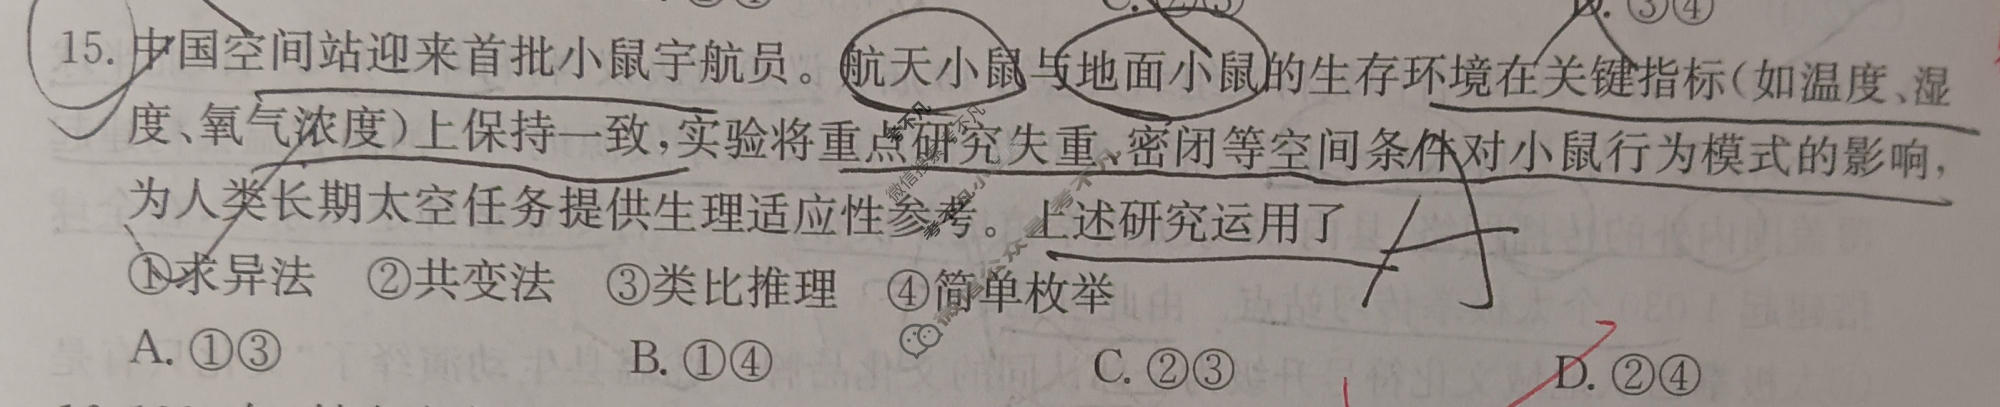 ③④
15. 中国空间站迎来首批小鼠宇航员。航天小鼠与地面小鼠的生存环境在关键指标(如温度、湿
度、氧气浓度)上保持一致,实验将重点研究失重、密闭等空间条件对小鼠行为模式的影响,
为人类长期太空任务提供生理适应性参考。上述研究运用了
①求异法 ②共变法 ③类比推理 ④简单枚举
A. ①③ B. ①④ C. ②③ D. ②④